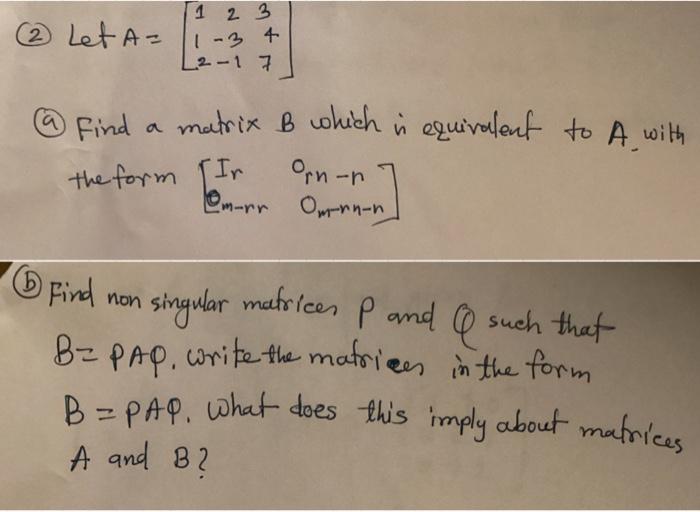 ② Let A = [1 2 3
1 -3 4
2 -1 7]
ⓐ Find a matrix B which is equivalent to A with
the form [Ir Orn-n
Om-rr Om-rn-n]
ⓑ Find non singular matrices P and Q such that
B = PAQ. write the matrices in the form
B = PAQ. What does this imply about matrices
A and B?